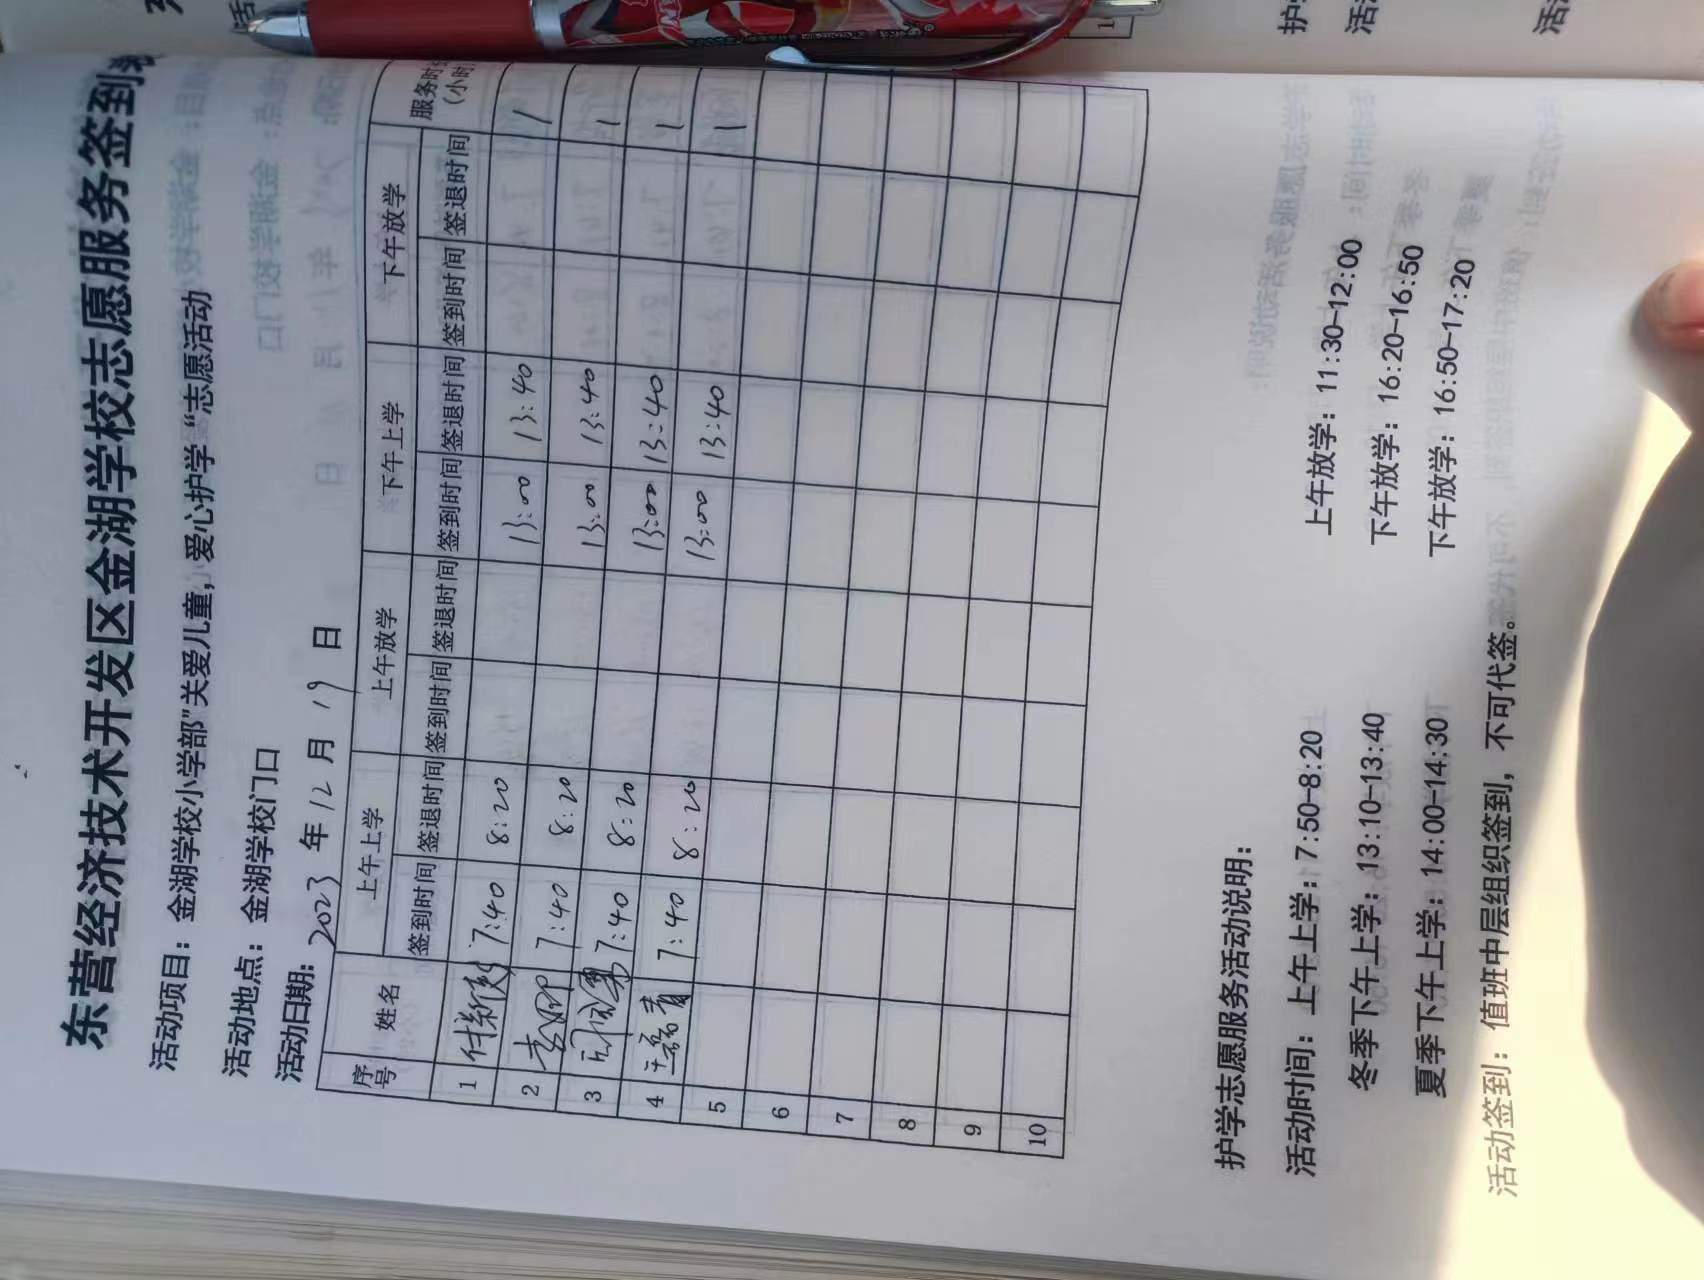 东营经济技术开发区金湖学校志愿服务签到
活动项目：金湖学校小学部"关爱儿童，爱心护学"志愿活动
活动地点：金湖学校门口
活动日期：2023 年 12 月 19 日
序号 姓名 上午上学 上午放学 下午上学 下午放学 服务时
（小时
签到时间 签退时间 签到时间 签退时间 签到时间 签退时间 签到时间 签退时间
1 7:40 8:20 13:00 13:40 1
2 7:40 8:20 13:00 13:40 1
3 7:40 8:20 13:00 13:40 1
4 7:40 8:20 13:00 13:40 1
5
6
7
8
9
10
护学志愿服务活动说明：
活动时间：上午上学：7:50-8:20 上午放学：11:30-12:00
冬季下午上学：13:10-13:40 下午放学：16:20-16:50
夏季下午上学：14:00-14:30 下午放学：16:50-17:20
活动签到：值班中层组织签到，不可代签。